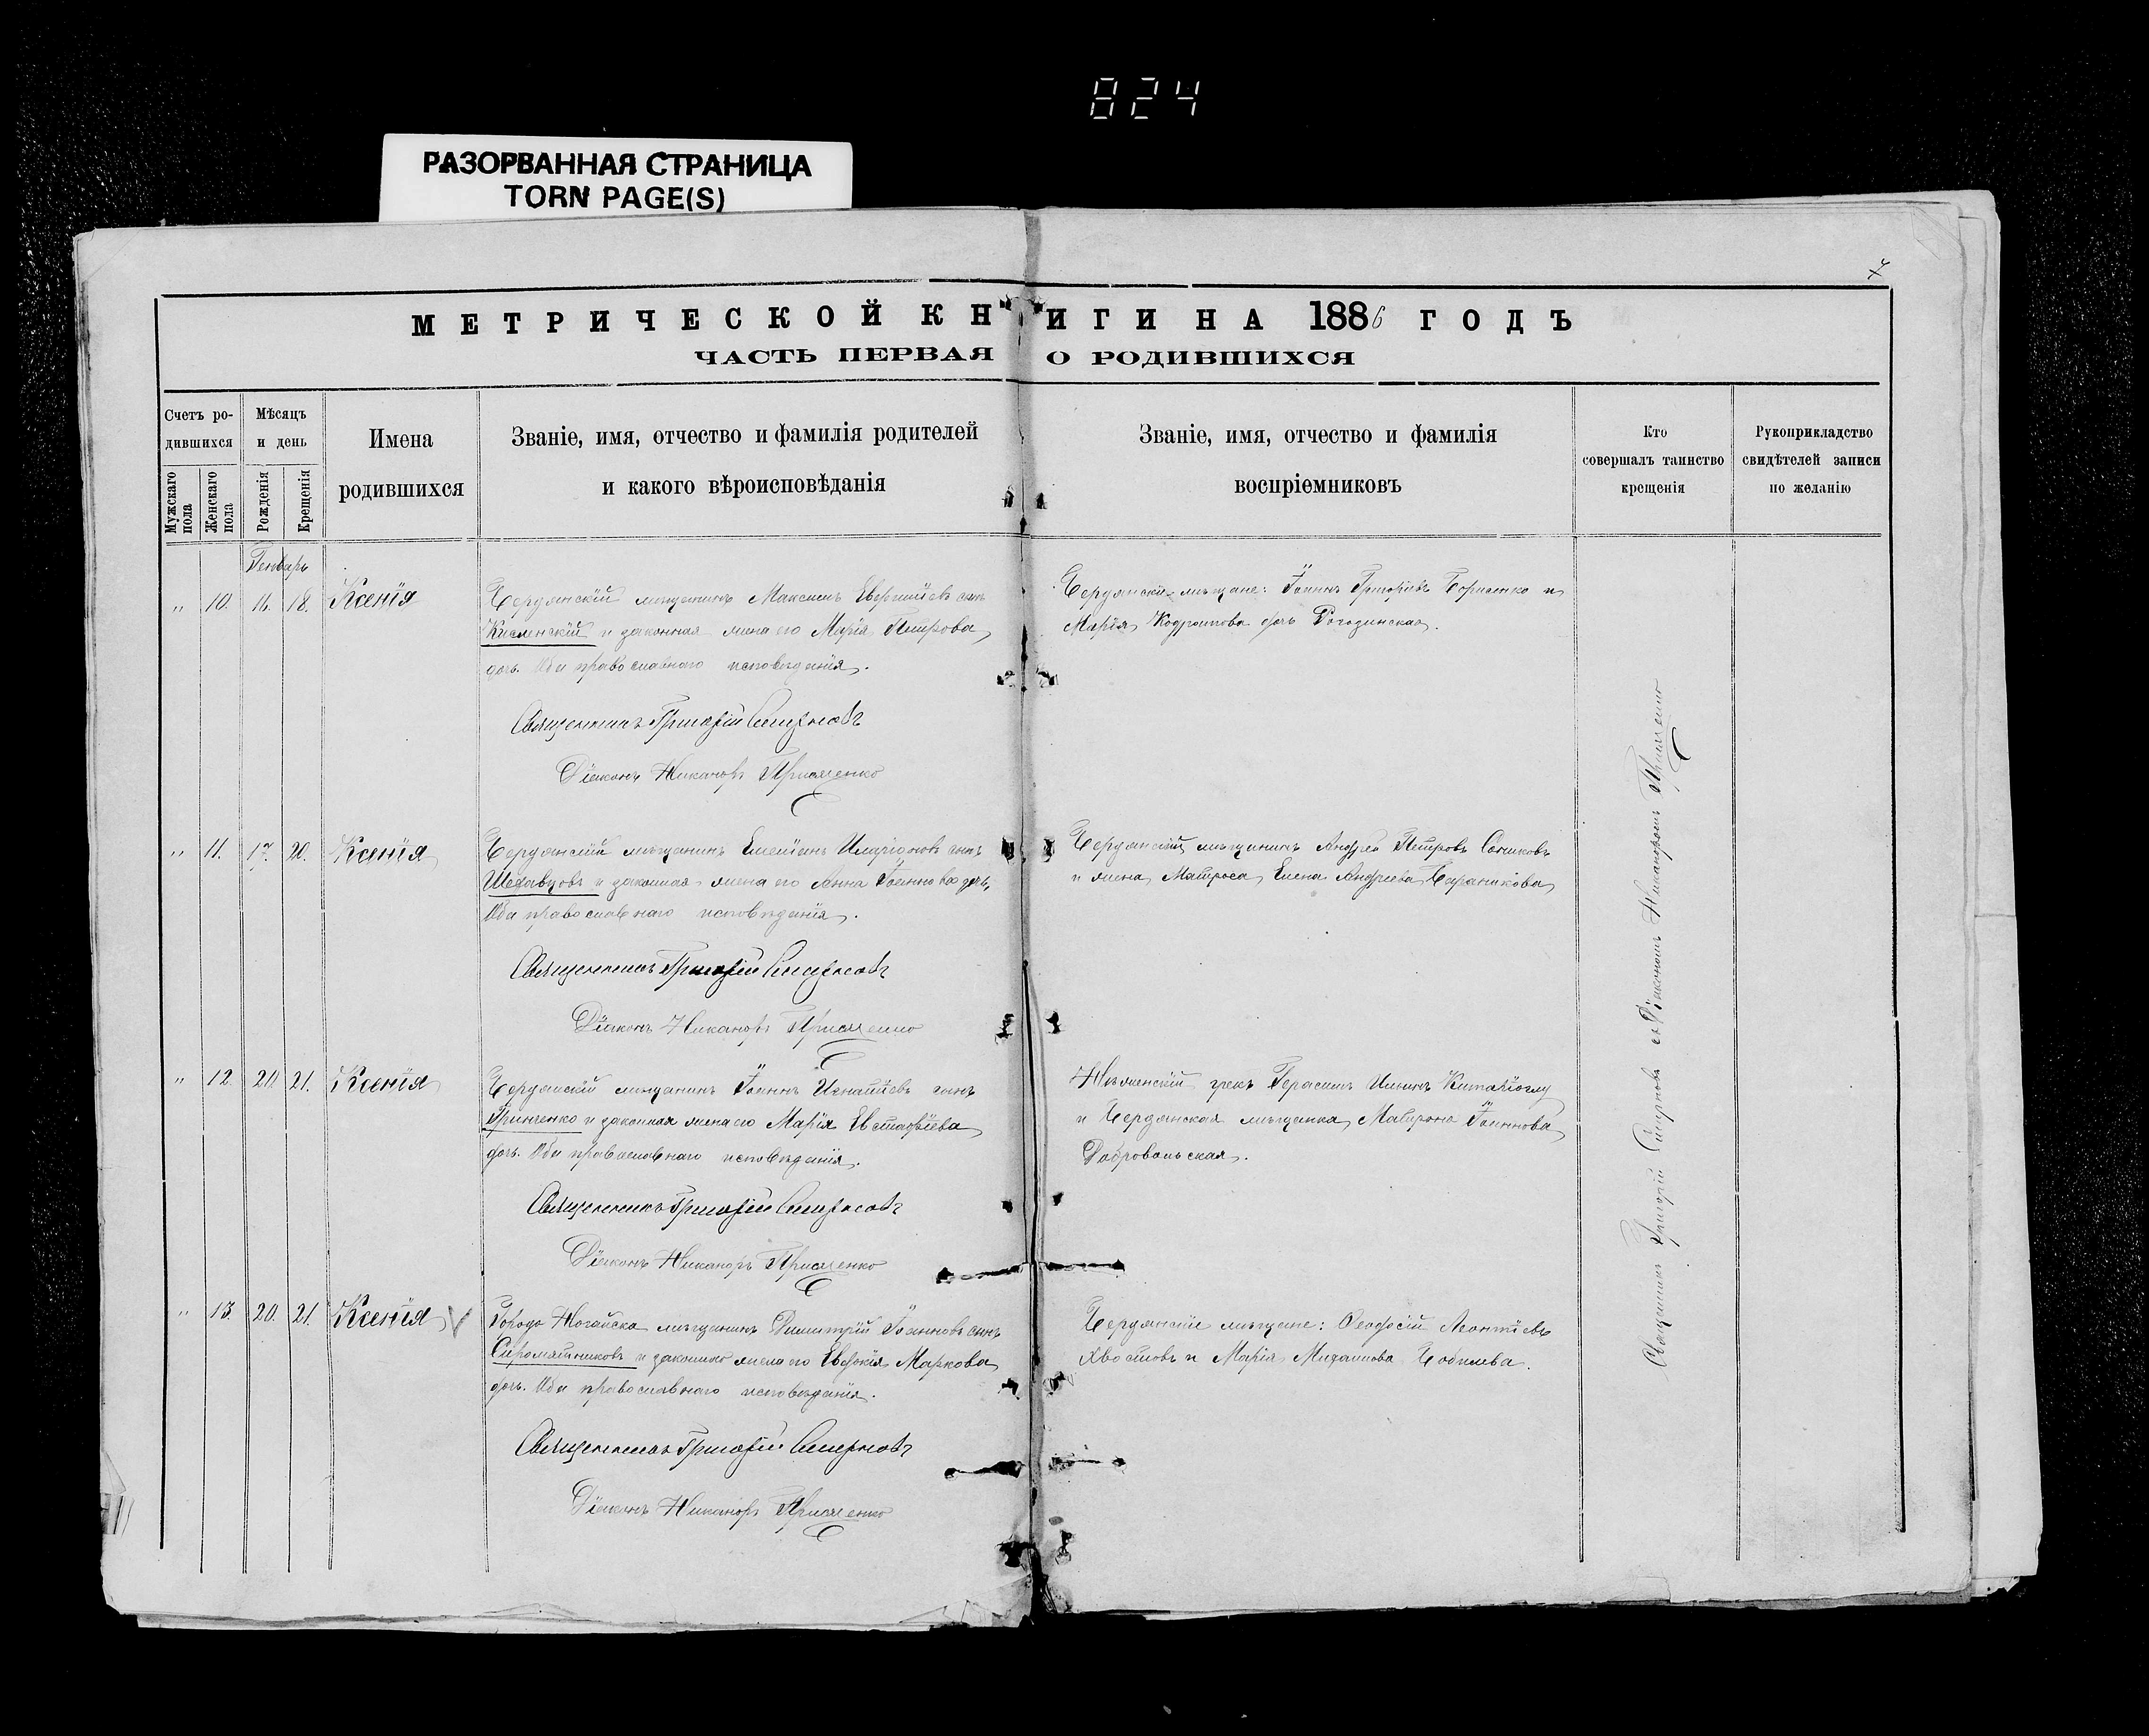 824
РАЗОРВАННАЯ СТРАНИЦА
TORN PAGE(S)
МЕТРИЧЕСКОЙ КНИГИ НА 1886 ГОДЪ
ЧАСТЬ ПЕРВАЯ О РОДИВШИХСЯ
Счетъ ро-
дившихся
Мужскаго пола
Женскаго пола
Мѣсяцъ
и день
Рожденія
Крещенія
Имена
родившихся
Званіе, имя, отчество и фамилія родителей
и какого вѣроисповѣданія
Званіе, имя, отчество и фамилія
воспріемниковъ
Кто
совершалъ таинство
крещенія
Рукоприкладство
свидѣтелей записи
по желанію
Генварь
" 10. 16. 18. Ксенія
Бердянскій мѣщанинъ Максимъ сынъ
Кисленскій и законная жена его Марія Петрова
дочь. Оба православнаго исповѣданія.
Бердянскіе мѣщане: Іоаннъ Григорьевъ и
Марія дочь Рогозинская.
Священникъ Григорій Смирновъ
Діаконъ Никаноръ
" 11. 17. 20. Ксенія
Бердянскій мѣщанинъ Емеліанъ Иларіоновъ сынъ
и законная жена его Анна Іоаннова дочь,
Оба православнаго исповѣданія.
Бердянскій мѣщанинъ Андрей Петровъ
и жена Матроса Елена Андреева Бараникова
Священникъ Григорій Смирновъ
Діаконъ Никаноръ
" 12. 20. 21. Ксенія
Бердянскій мѣщанинъ Іоаннъ Игнатіевъ сынъ
Гринченко и законная жена его Марія Евстафіева
дочь. Оба православнаго исповѣданія.
грекъ Герасимъ
и Бердянская мѣщанка Матрона Іоаннова
Добровольская.
Священникъ Григорій Смирновъ
Діаконъ Никаноръ
" 13. 20. 21. Ксенія
Города Ногайска мѣщанинъ Димитрій Іоанновъ сынъ
Сыромятниковъ и законная жена его Евдокія Маркова
дочь. Оба православнаго исповѣданія.
Бердянскіе мѣщане: Ѳеодосій Леонтіевъ
Хвостовъ и Марія Михаилова Кобилева.
Священникъ Григорій Смирновъ
Діаконъ Никаноръ
Священникъ Григорій Смирновъ съ Діакономъ Никаноромъ